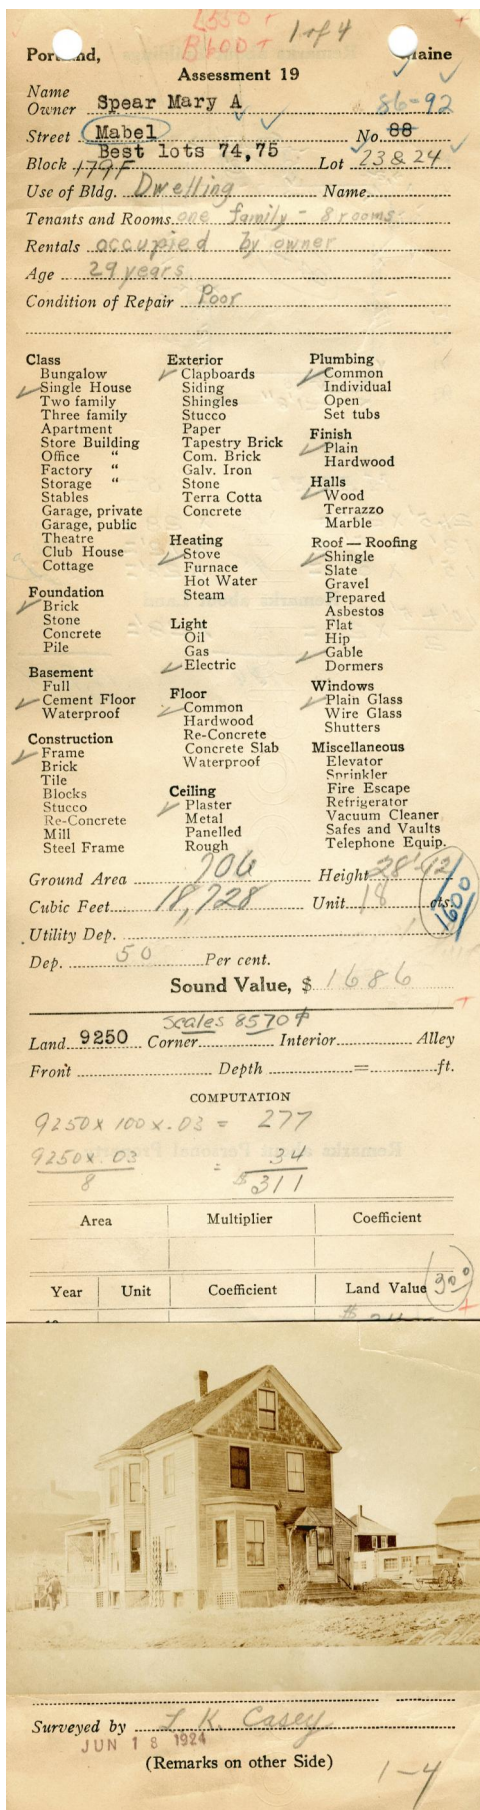 L550 +
B600 + 1 of 4
Portland, Maine
Assessment 19
Name
Owner Spear Mary A 86-92
Street Mabel No. 88
Best lots 74,75
Block 179F Lot 23 & 24
Use of Bldg. Dwelling Name
Tenants and Rooms one family - 8 rooms
Rentals occupied by owner
Age 29 years
Condition of Repair Poor
Class
Bungalow
✓ Single House
Two family
Three family
Apartment
Store Building
Office "
Factory "
Storage "
Stables
Garage, private
Garage, public
Theatre
Club House
Cottage
Foundation
✓ Brick
Stone
Concrete
Pile
Basement
Full
✓ Cement Floor
Waterproof
Construction
✓ Frame
Brick
Tile
Blocks
Stucco
Re-Concrete
Mill
Steel Frame
Exterior
✓ Clapboards
Siding
Shingles
Stucco
Paper
Tapestry Brick
Com. Brick
Galv. Iron
Stone
Terra Cotta
Concrete
Heating
✓ Stove
Furnace
Hot Water
Steam
Light
Oil
Gas
✓ Electric
Floor
✓ Common
Hardwood
Re-Concrete
Concrete Slab
Waterproof
Ceiling
✓ Plaster
Metal
Panelled
Rough
Plumbing
✓ Common
Individual
Open
Set tubs
Finish
✓ Plain
Hardwood
Halls
✓ Wood
Terrazzo
Marble
Roof — Roofing
✓ Shingle
Slate
Gravel
Prepared
Asbestos
Flat
Hip
✓ Gable
Dormers
Windows
✓ Plain Glass
Wire Glass
Shutters
Miscellaneous
Elevator
Sprinkler
Fire Escape
Refrigerator
Vacuum Cleaner
Safes and Vaults
Telephone Equip.
Ground Area 706 Height 28'-12
Cubic Feet 18,728 Unit 18 cts. 1600
Utility Dep.
Dep. 50 Per cent.
Sound Value, $ 1686
Scales 8570
Land 9250 Corner Interior Alley
Front Depth = ft.
COMPUTATION
9250 x 100 x .03 = 277
9250 x .03 = 34
8 $311
Area Multiplier Coefficient
Year Unit Coefficient Land Value 300
Surveyed by L K. Casey
JUN 18 1924
(Remarks on other Side)
1-4